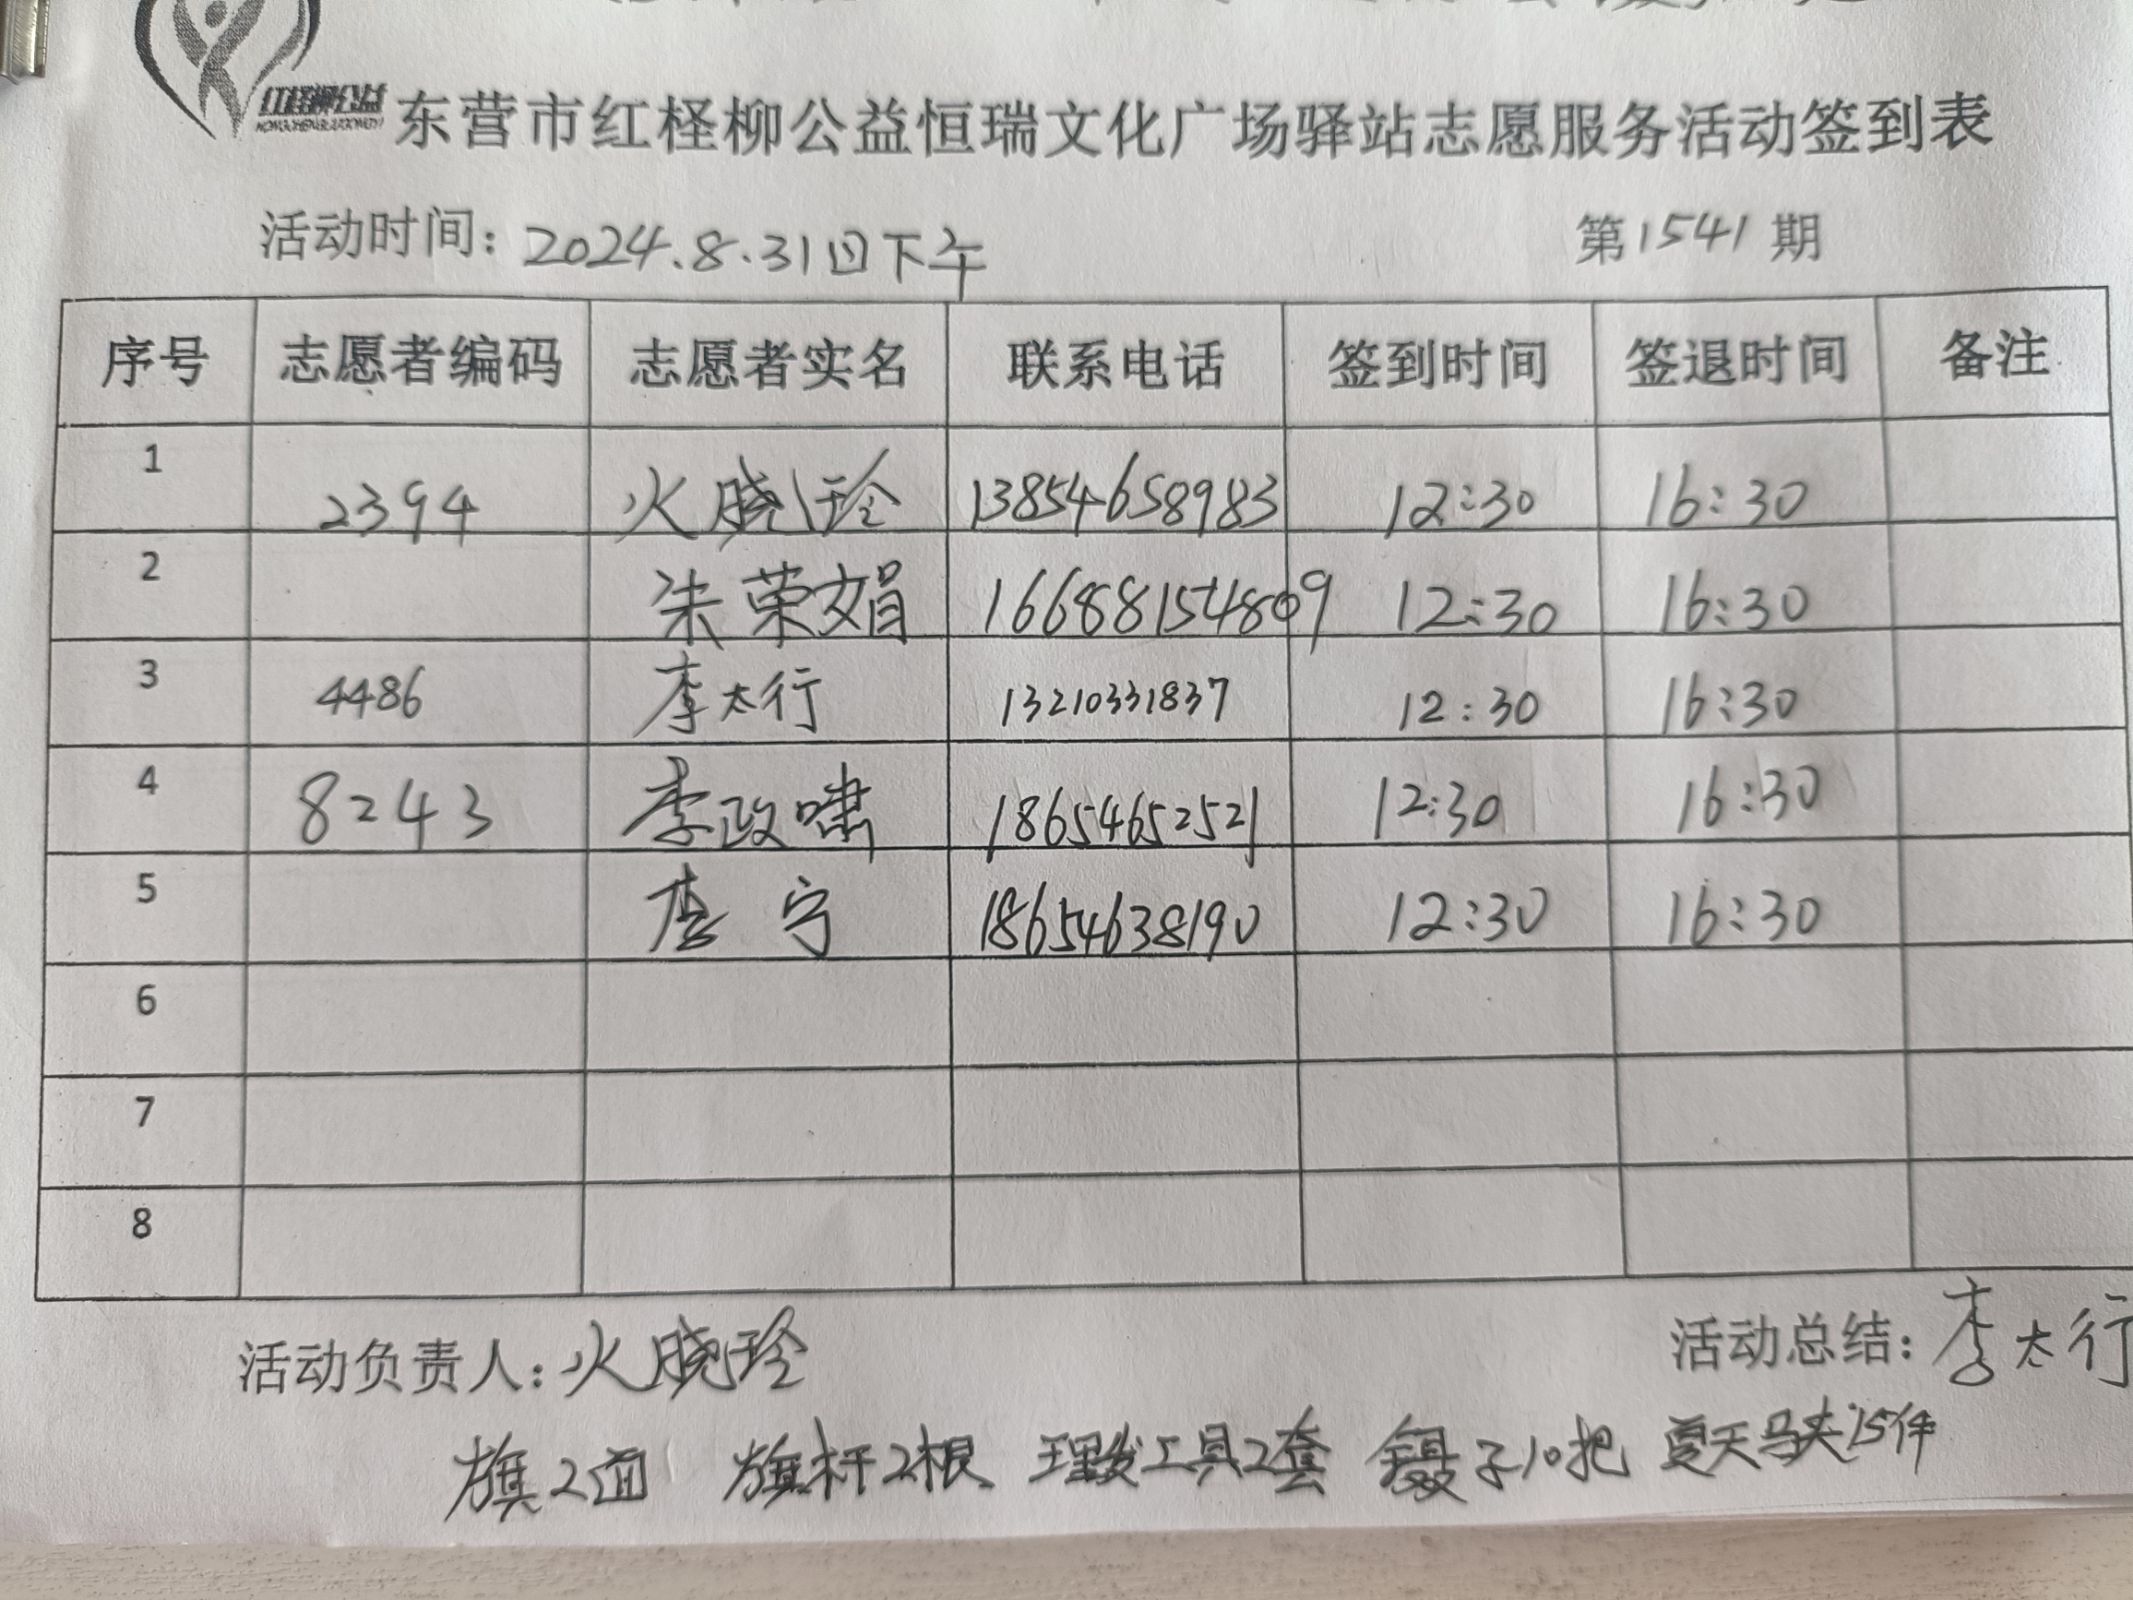 红柽柳公益
东营市红柽柳公益恒瑞文化广场驿站志愿服务活动签到表
活动时间：2024.8.31日下午 第1541期
序号 志愿者编码 志愿者实名 联系电话 签到时间 签退时间 备注
1 2394 火晓玲 13854658983 12:30 16:30
2 朱荣娟 16688154809 12:30 16:30
3 4486 李太行 13210331837 12:30 16:30
4 8243 李政啸 18654652521 12:30 16:30
5 唐宁 18654638190 12:30 16:30
6
7
8
活动负责人：火晓玲 活动总结：李太行
旗2面 旗杆2根 理发工具2套 镊子10把 夏天马夹15件